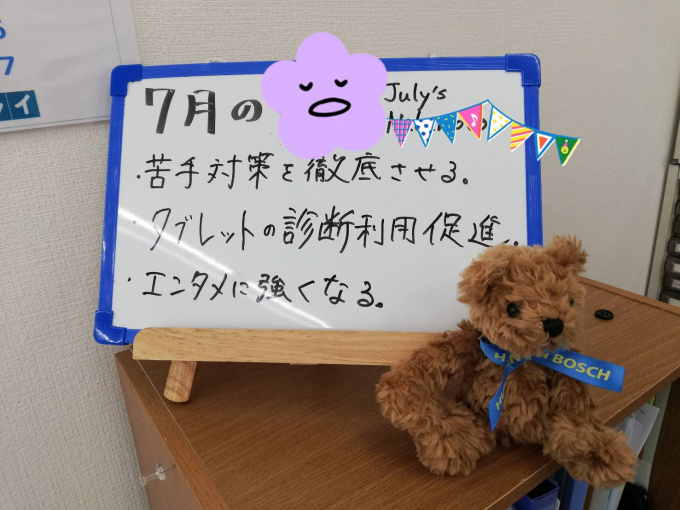 7
イ
7月の
July's
・苦手対策を徹底させる。
・タブレットの診断利用促進。
・エンタメに強くなる。
BOSCH